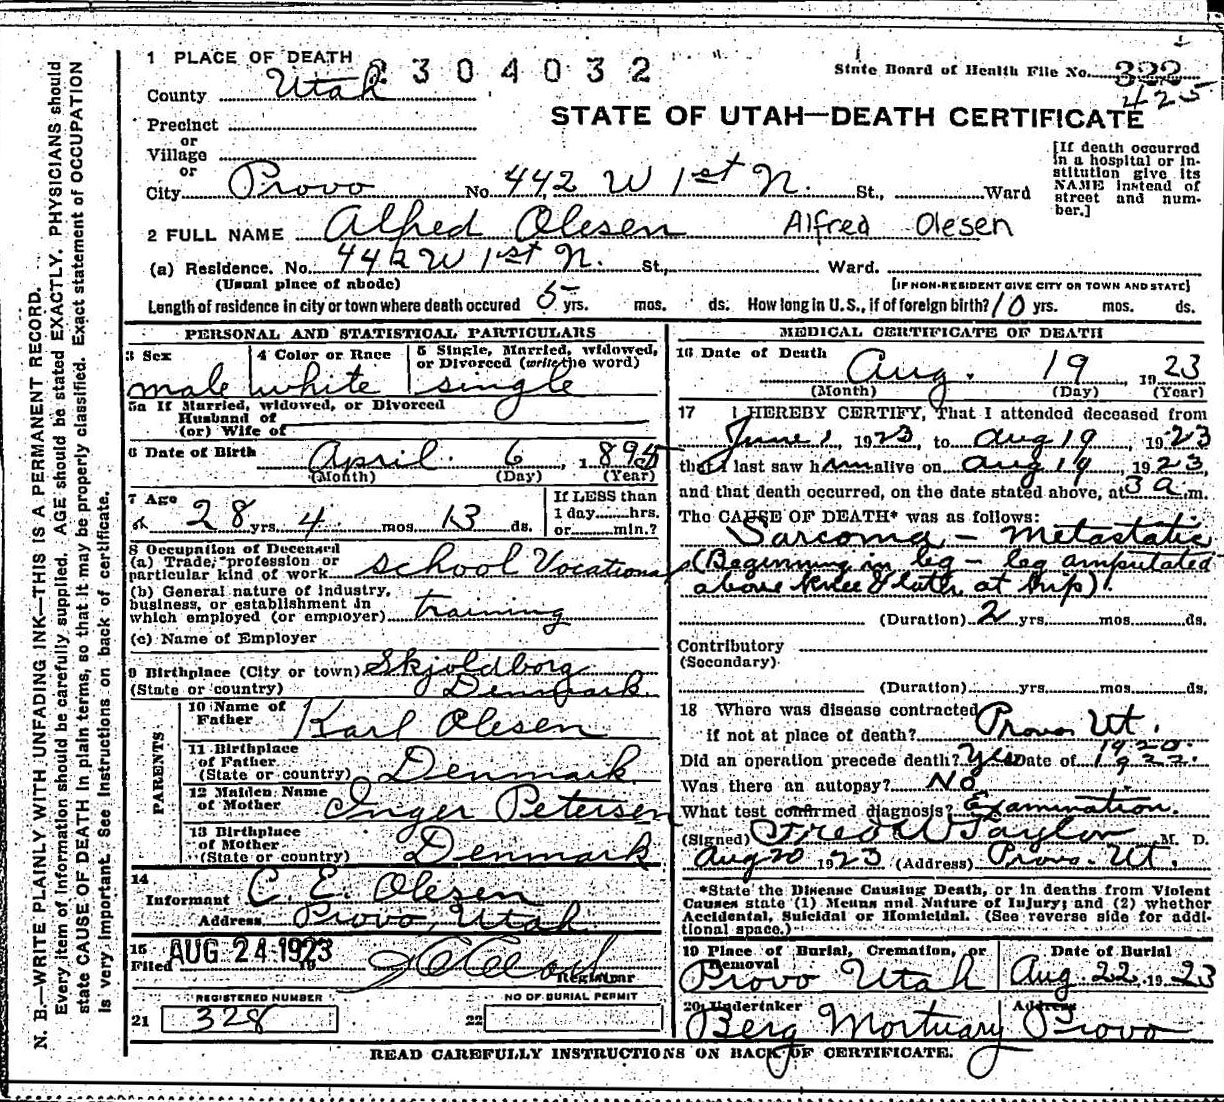 N. B.—WRITE PLAINLY WITH UNFADING INK—THIS IS A PERMANENT RECORD.
Every item of information should be carefully supplied. AGE should be stated EXACTLY. PHYSICIANS should
state CAUSE OF DEATH in plain terms, so that it may be properly classified. Exact statement of OCCUPATION
is very important. See instructions on back of certificate.
1 PLACE OF DEATH 2304032
State Board of Health File No. 322
425
County Utah
STATE OF UTAH—DEATH CERTIFICATE
Precinct
or
Village
or
City Provo No. 442 W 1st N. St., Ward
[If death occurred
in a hospital or in-
stitution give its
NAME instead of
street and num-
ber.]
2 FULL NAME Alfred Olesen Alfred Olesen
(a) Residence. No. 442 W 1st N. St., Ward.
(Usual place of abode) [IF NON-RESIDENT GIVE CITY OR TOWN AND STATE]
Length of residence in city or town where death occured 5 yrs. mos. ds. How long in U.S., if of foreign birth? 10 yrs. mos. ds.
PERSONAL AND STATISTICAL PARTICULARS
3 Sex
male
4 Color or Race
white
5 Single, Married, widowed,
or Divorced (write the word)
single
5a If Married, widowed, or Divorced
Husband of
(or) Wife of
6 Date of Birth April 6, 1895
(Month) (Day) (Year)
7 Age
28 yrs. 4 mos. 13 ds.
If LESS than
1 day hrs.
or min.?
8 Occupation of Deceased
(a) Trade, profession or
particular kind of work school Vocational
(b) General nature of industry,
business, or establishment in
which employed (or employer) training
(c) Name of Employer
9 Birthplace (City or town) Skjoldborg
(State or country) Denmark.
PARENTS
10 Name of
Father Karl Olesen
11 Birthplace
of Father
(State or country) Denmark
12 Maiden Name
of Mother Inger Petersen
13 Birthplace
of Mother
(State or country) Denmark
14
Informant C. E. Olesen
Address Provo, Utah
15 AUG 24 1923
Filed 19
Registrar
REGISTERED NUMBER
21 328
NO OF BURIAL PERMIT
22
MEDICAL CERTIFICATE OF DEATH
16 Date of Death
Aug. 19 1923
(Month) (Day) (Year)
17 I HEREBY CERTIFY, That I attended deceased from
June 1, 1923, to Aug 19, 1923
that I last saw him alive on Aug 19, 1923,
and that death occurred, on the date stated above, at 3 a.m.
The CAUSE OF DEATH* was as follows:
Sarcoma — Metastatic
(Beginning in leg — leg amputated
above knee & later at hip).
(Duration) 2 yrs. mos. ds.
Contributory
(Secondary)
(Duration) yrs. mos. ds.
18 Where was disease contracted
if not at place of death? Provo Ut.
Did an operation precede death? Yes Date of 1920. 1922.
Was there an autopsy? No
What test confirmed diagnosis? Examination.
(Signed) Fred W Taylor M. D.
Aug 20 1923 (Address) Provo. Ut.
*State the Disease Causing Death, or in deaths from Violent
Causes state (1) Means and Nature of Injury; and (2) whether
Accidental, Suicidal or Homicidal. (See reverse side for addi-
tional space.)
19 Place of Burial, Cremation, or
Removal
Provo Utah
Date of Burial
Aug. 22. 1923
20 Undertaker
Berg Mortuary
Address
Provo
READ CAREFULLY INSTRUCTIONS ON BACK OF CERTIFICATE.